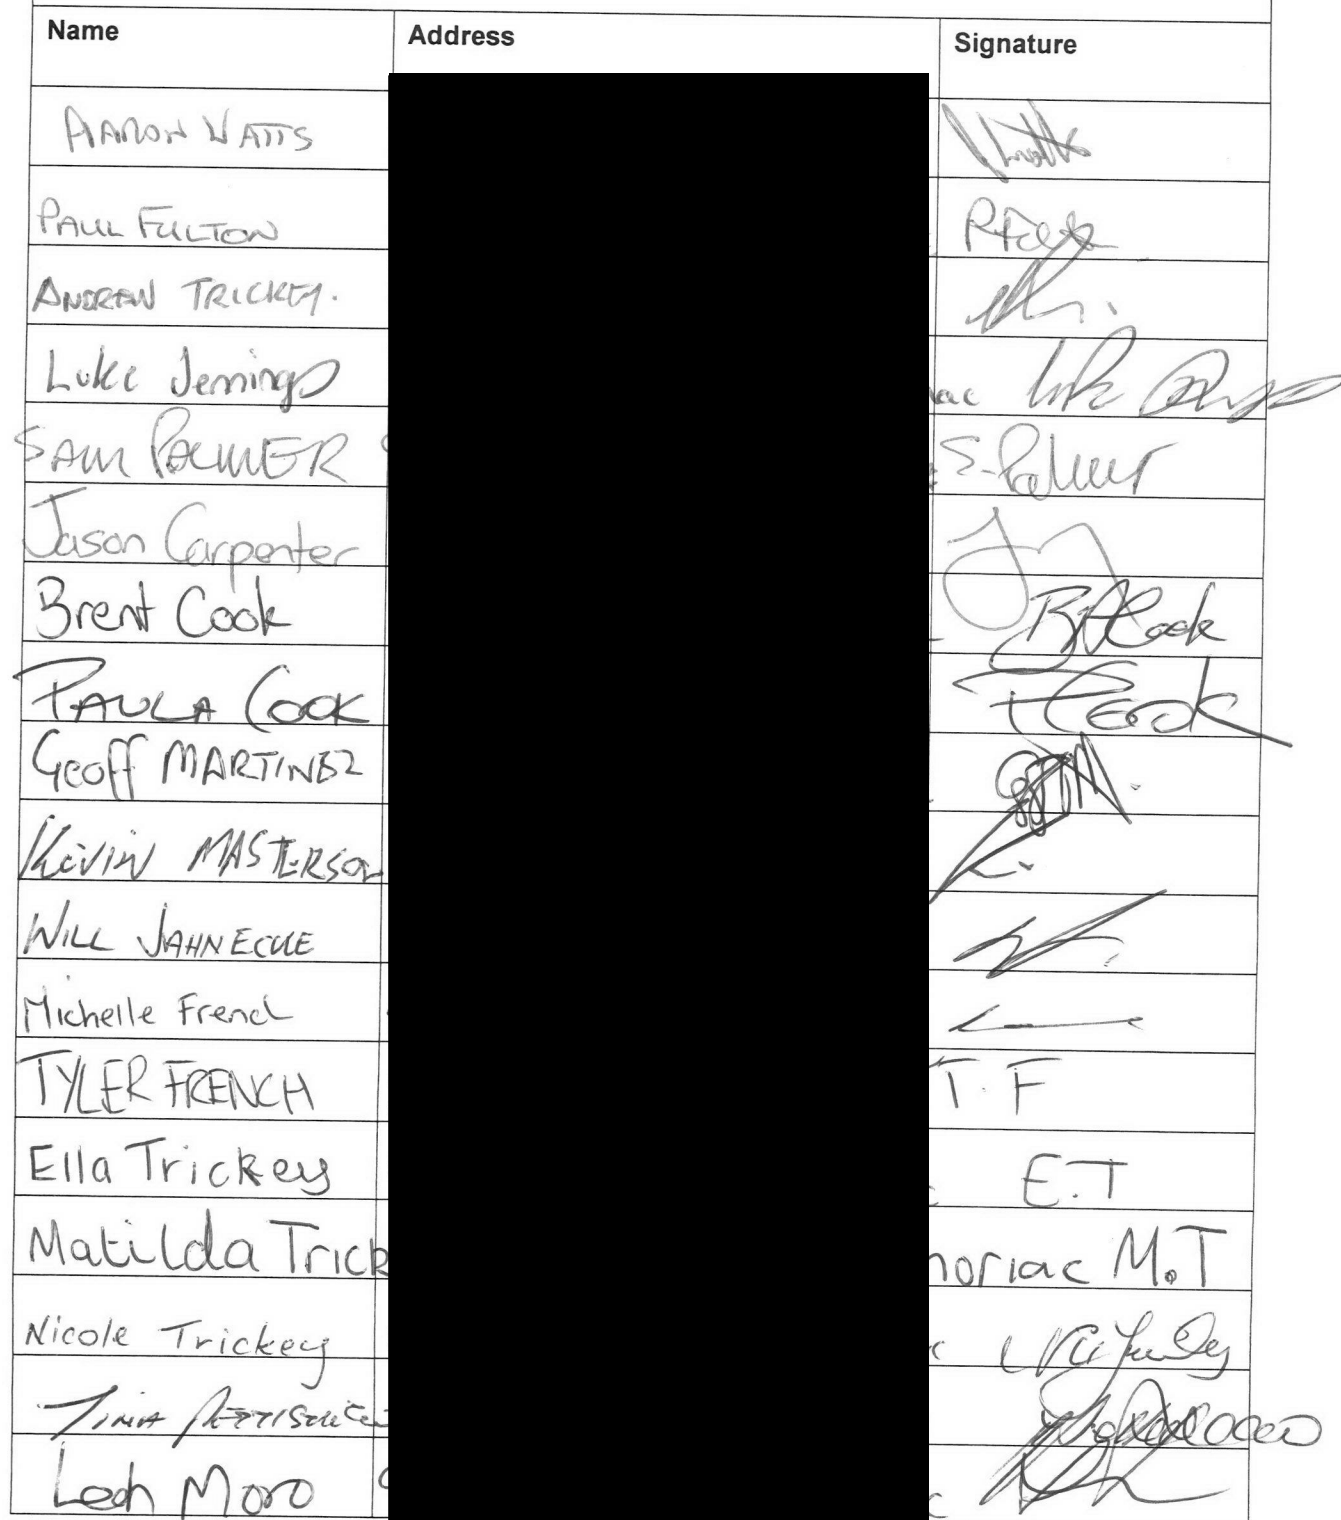 Name Address Signature
AARON WATTS
PAUL FULTON P Fult
ANDREW TRICKEY.
Luke Jennings
SAM PALMER S. Palmer
Jason Carpenter
Brent Cook B A Cook
PAULA COOK P Cook
Geoff MARTINEZ
KEVIN MASTERSON
WILL JAHNECKE
Michelle French
TYLER FRENCH T. F
Ella Trickey E.T
Matilda Trick moriac M.T
Nicole Trickey
TINA
Leah Moro